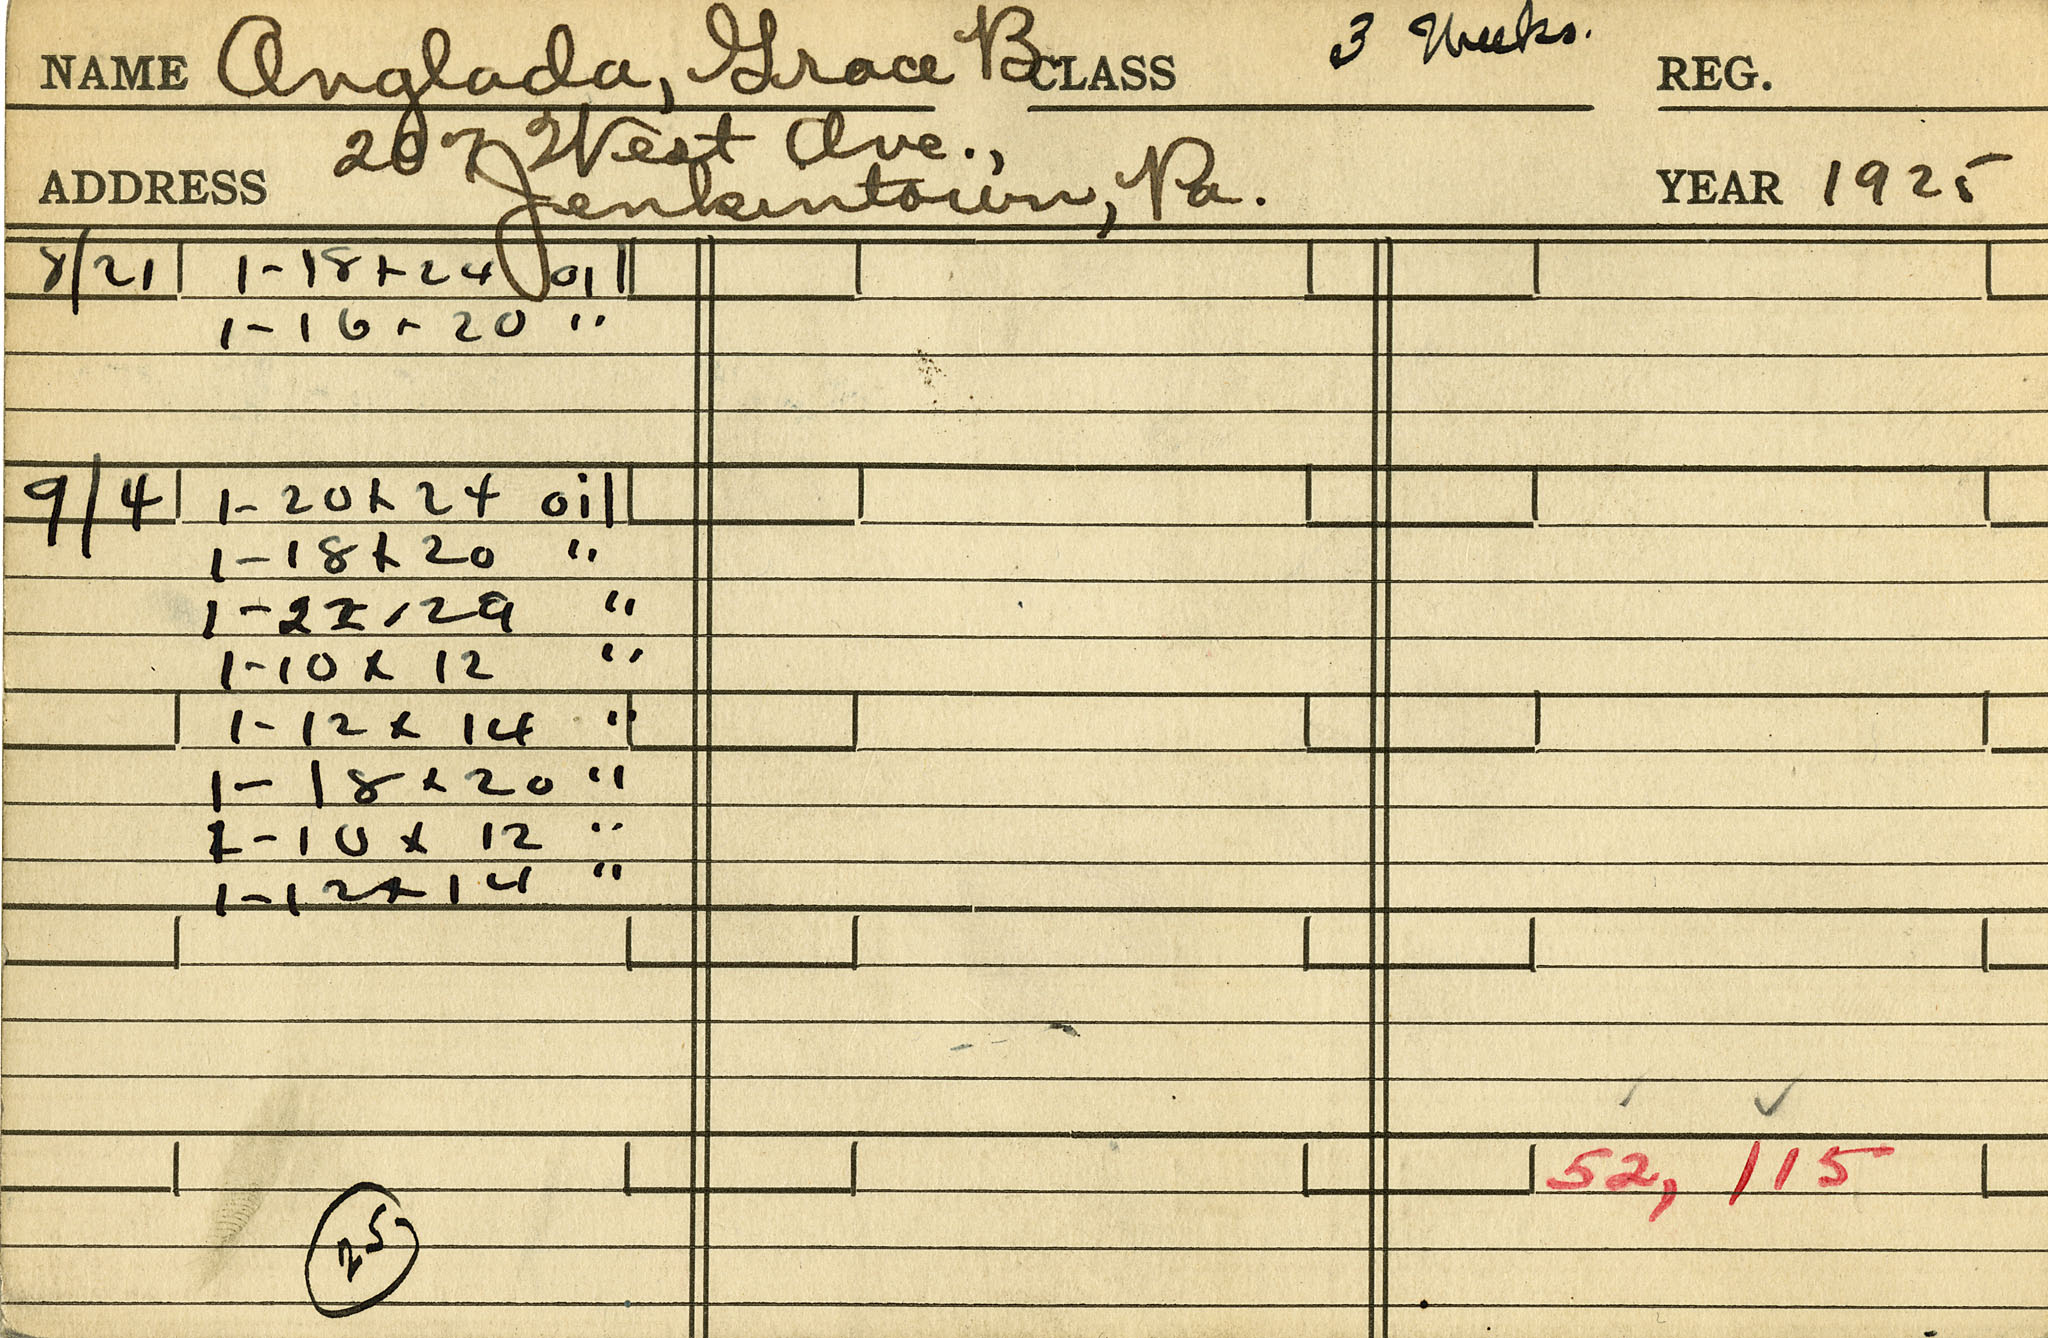 NAME Anglada, Grace B. CLASS 3 Weeks. REG.
ADDRESS 207 West Ave.,
Jenkintown, Pa. YEAR 1925
8/21 1-18x24 oil
1-16x20 "
9/4 1-20x24 oil
1-18x20 "
1-10x12 "
1-12x14 "
1-18x20 "
1-10x12 "
1-12x14 "
52, 115
25